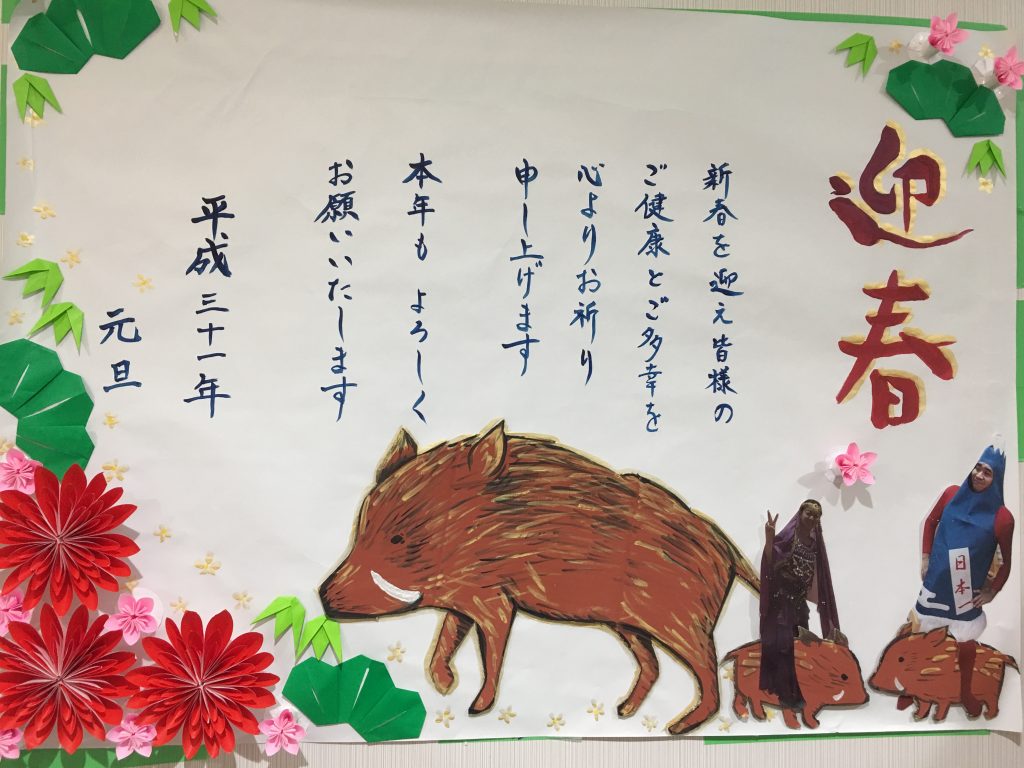 迎春
新春を迎え皆様の
ご健康とご多幸を
心よりお祈り
申し上げます
本年も よろしく
お願いいたします
平成三十一年
元旦
日本一